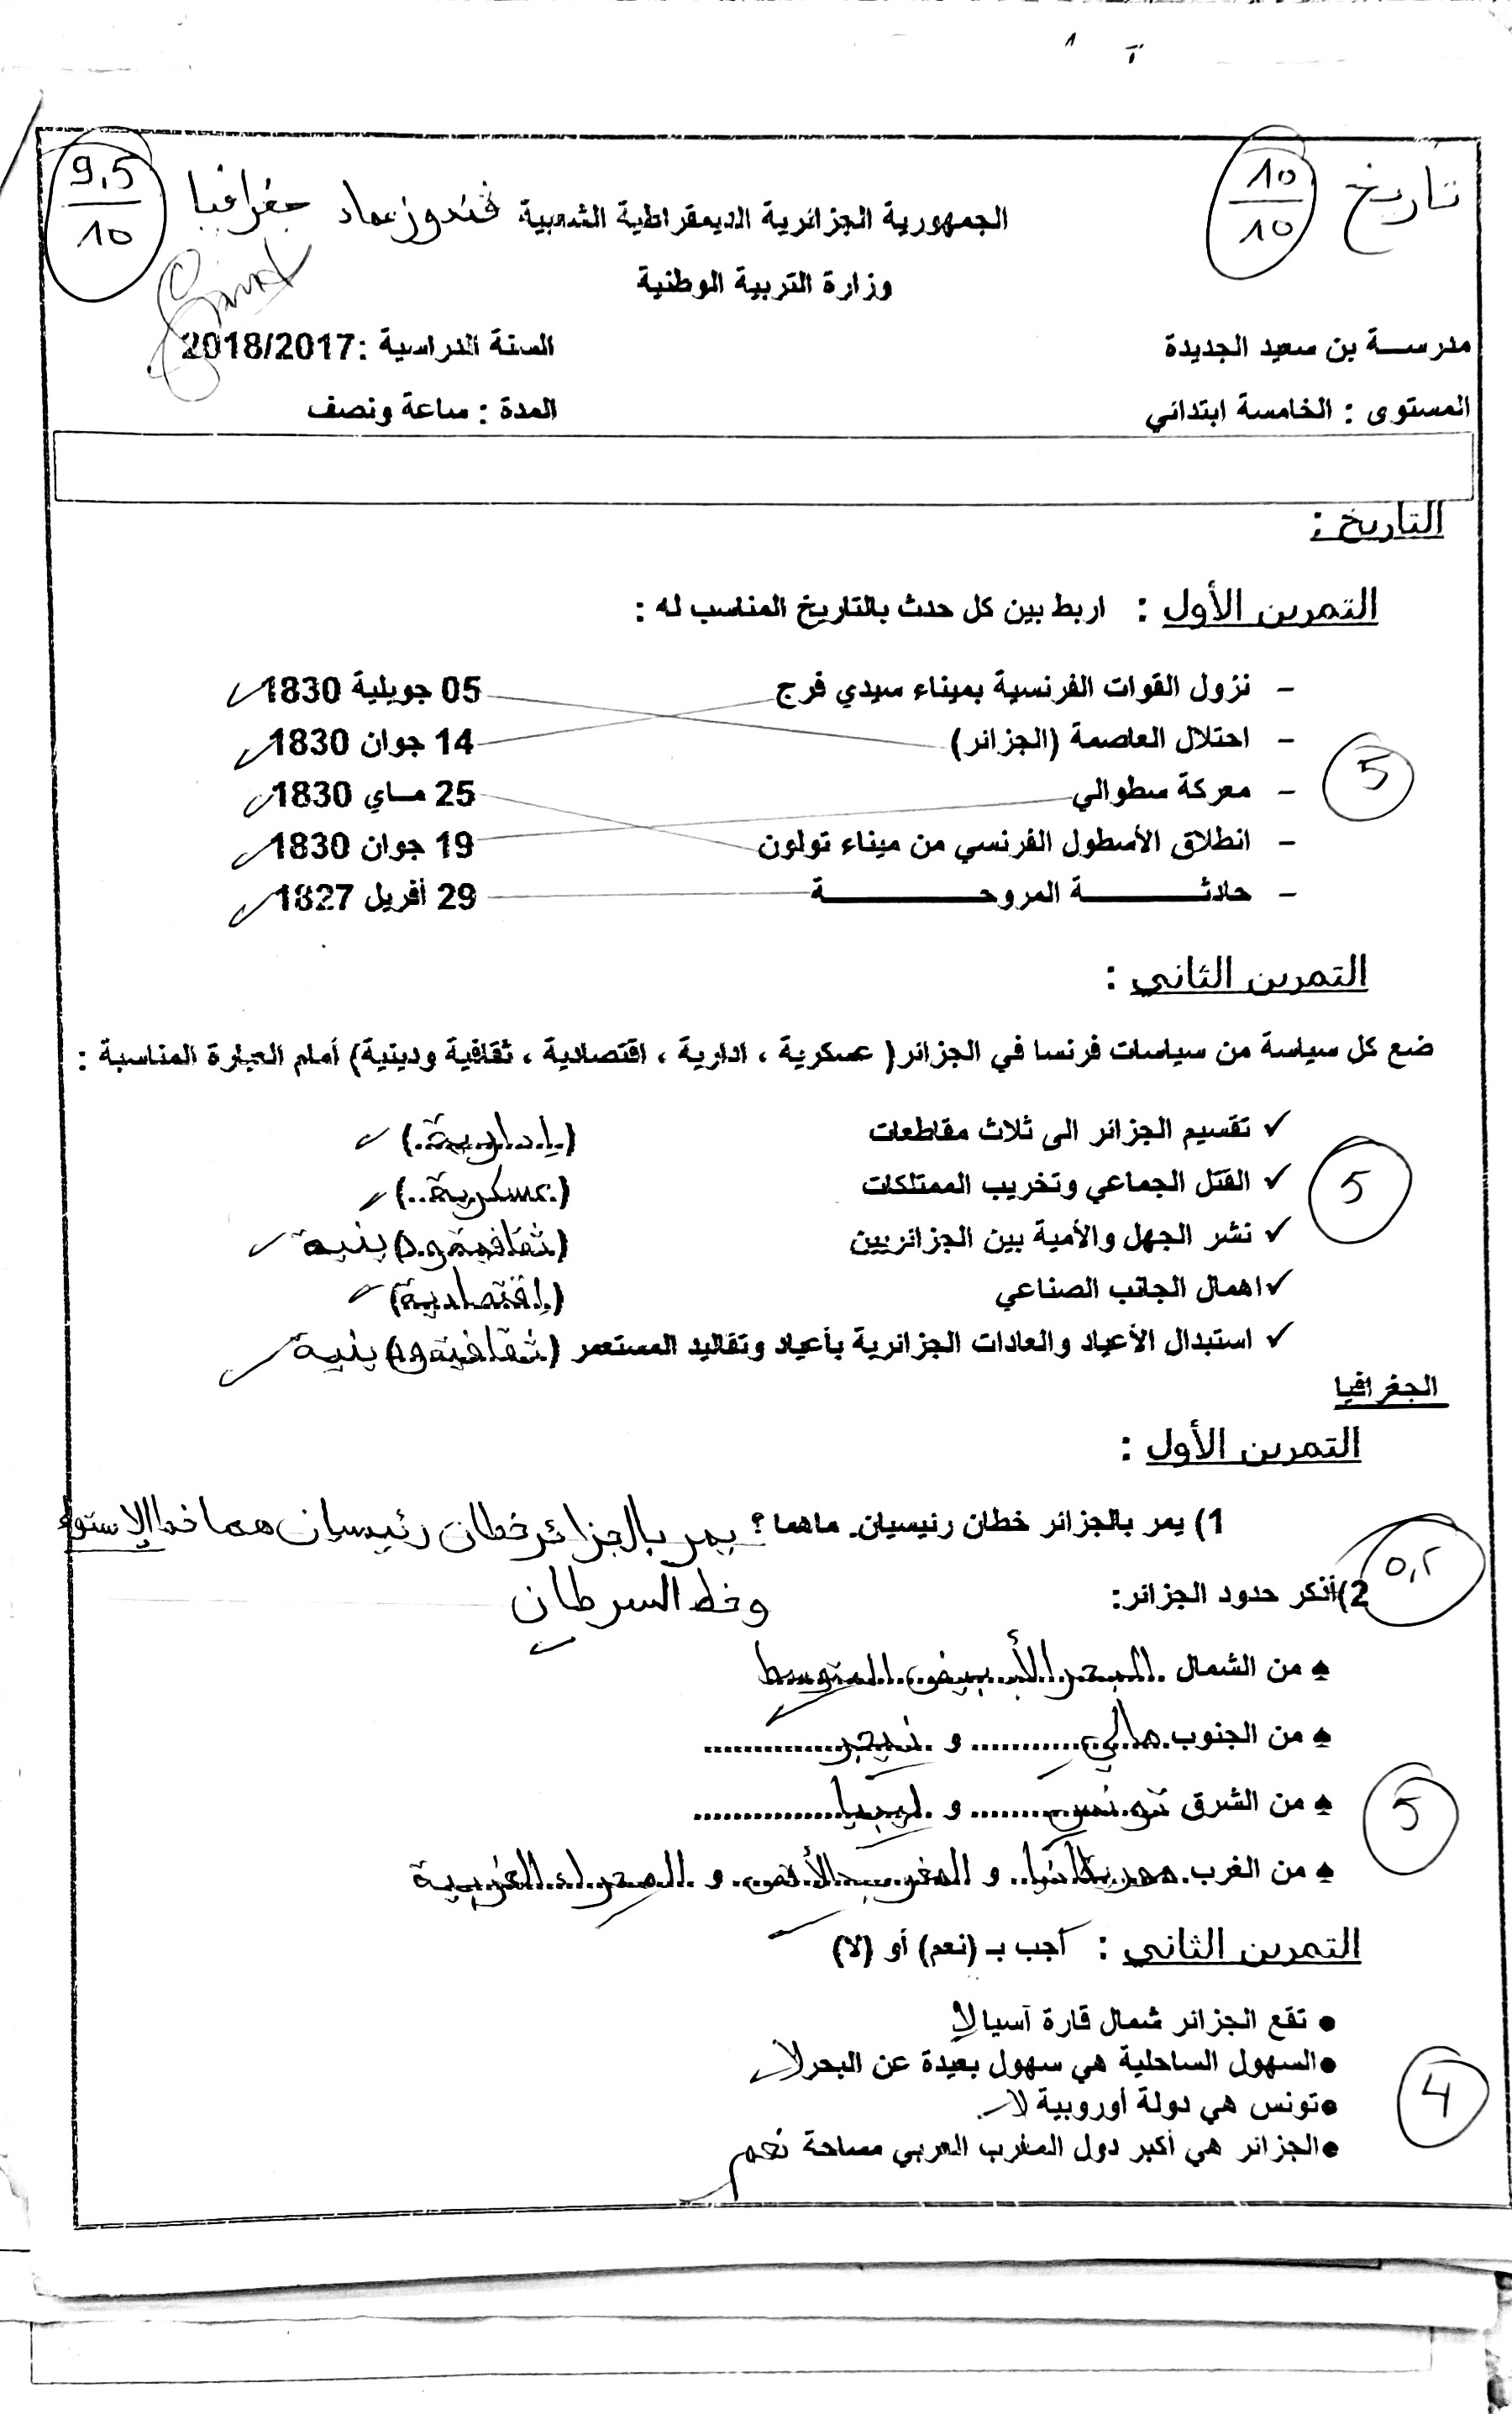 تاريخ 10/10
الجمهورية الجزائرية الديمقراطية الشعبية قندوز عماد جغرافيا 9,5/10
وزارة التربية الوطنية
مدرســة بن سعيد الجديدة السنة الدراسية :2018/2017
المستوى : الخامسة ابتدائي المدة : ساعة ونصف
التاريخ :
التمرين الأول : اربط بين كل حدث بالتاريخ المناسب له :
- نزول القوات الفرنسية بميناء سيدي فرج 05 جويلية 1830
- احتلال العاصمة (الجزائر) 14 جوان 1830
- معركة سطوالي 25 مــاي 1830
5
- انطلاق الأسطول الفرنسي من ميناء تولون 19 جوان 1830
- حادثــــــة المروحــــــــة 29 أفريل 1827
التمرين الثاني :
ضع كل سياسة من سياسات فرنسا في الجزائر( عسكرية ، ادارية ، اقتصادية ، ثقافية ودينية) أمام العبارة المناسبة :
✓ تقسيم الجزائر الى ثلاث مقاطعات (.إدارية..)
✓ القتل الجماعي وتخريب الممتلكات (.عسكرية..)
5
✓ نشر الجهل والأمية بين الجزائريين (ثقافية ود) ينية
✓ اهمال الجانب الصناعي (.إقتصادية)
✓ استبدال الأعياد والعادات الجزائرية بأعياد وتقاليد المستعمر (ثقافية ود) ينية
الجغرافيا
التمرين الأول :
1) يمر بالجزائر خطان رئيسيان. ماهما؟ يمر بالجزائر خطان رئيسيان هما خط الإستواء
وخط السرطان
2)أذكر حدود الجزائر:
♠ من الشمال .البحر الأبيض المتوسط
♠ من الجنوب.مالي............ و .نيجر...............
♠ من الشرق تونس........... و .ليبيا................
5
♠ من الغرب.موريتانيا.. و المغرب الأقصى. و .الصحراء الغربية
التمرين الثاني : أجب بـ (نعم) أو (لا)
● تقع الجزائر شمال قارة آسيا لا
●السهول الساحلية هي سهول بعيدة عن البحر لا
●تونس هي دولة أوروبية لا
4
●الجزائر هي أكبر دول المغرب العربي مساحة نعم